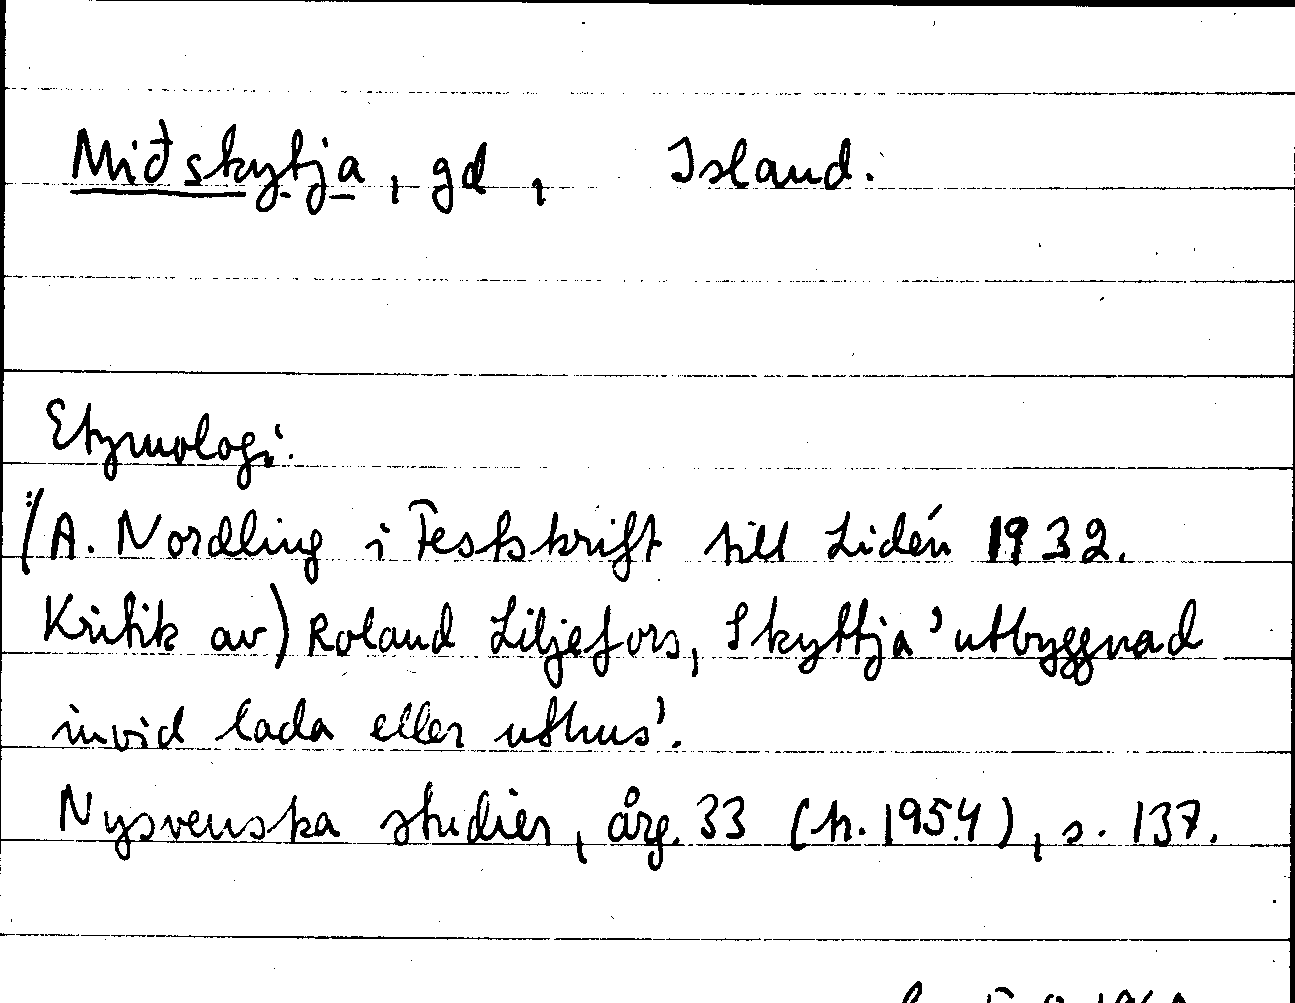 Miðskytja, gd, Island.
Etymologi:
(A. Nordling i Festskrift till Lidén 1932.
Kritik av) Roland Liljefors, Skyttja 'utbyggnad
invid lada eller uthus'.
Nysvenska studier, årg. 33 (tr. 1954), s. 137.